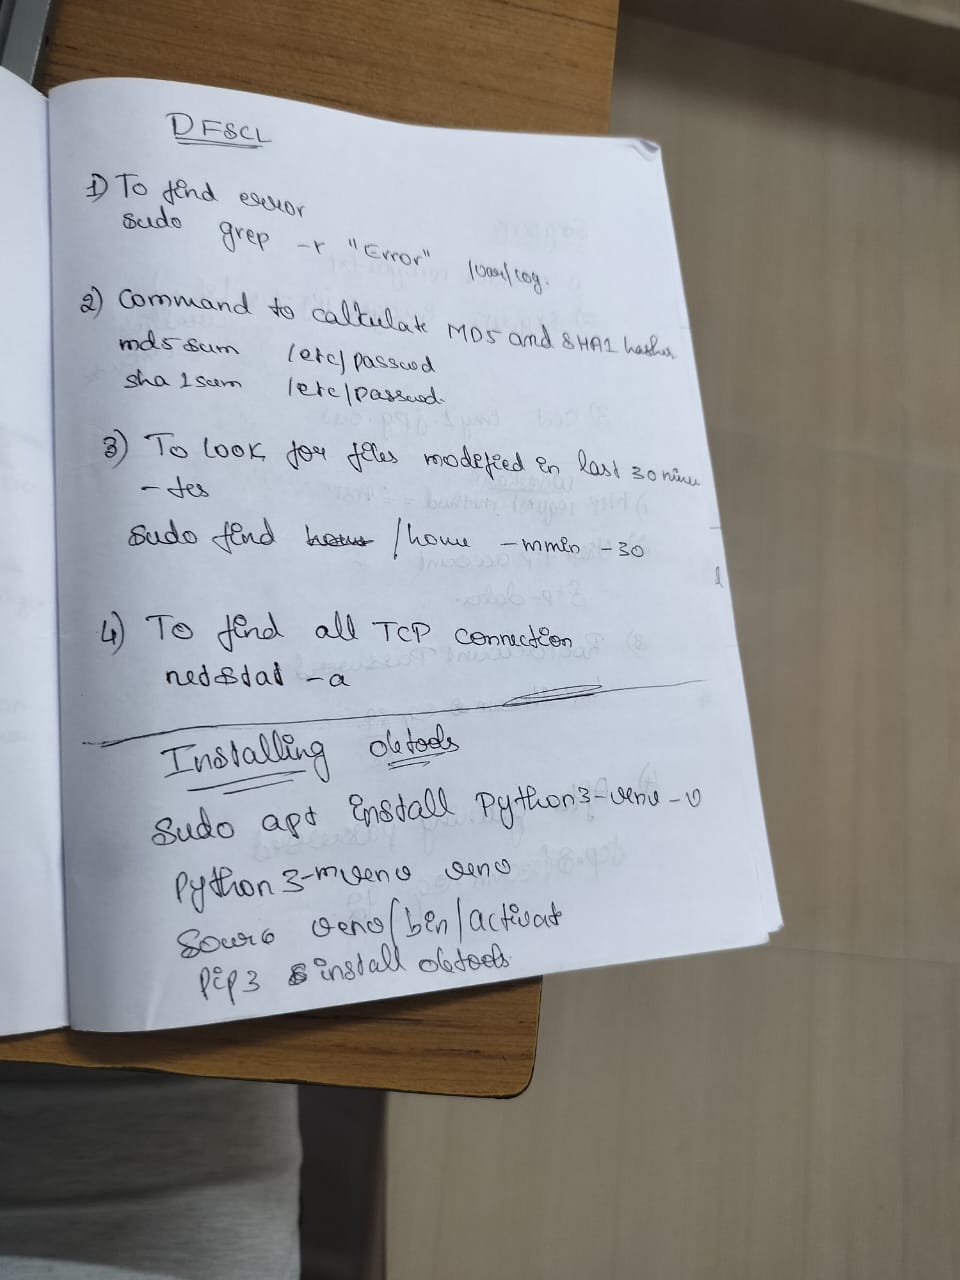 DFSCL
1) To find error
sudo grep -r "Error" /var/log.
2) Command to calculate MD5 and SHA1 hashes
md5sum /etc/passwd
sha1sum /etc/passwd.
3) To look for files modified in last 30 minu
-tes
sudo find /home -mmin -30
4) To find all TCP connection
netstat -a
Installing oletools
Sudo apt install Python3-venv -v
Python3-mvenv venv
Source venv/bin/activat
Pip3 install oletools.